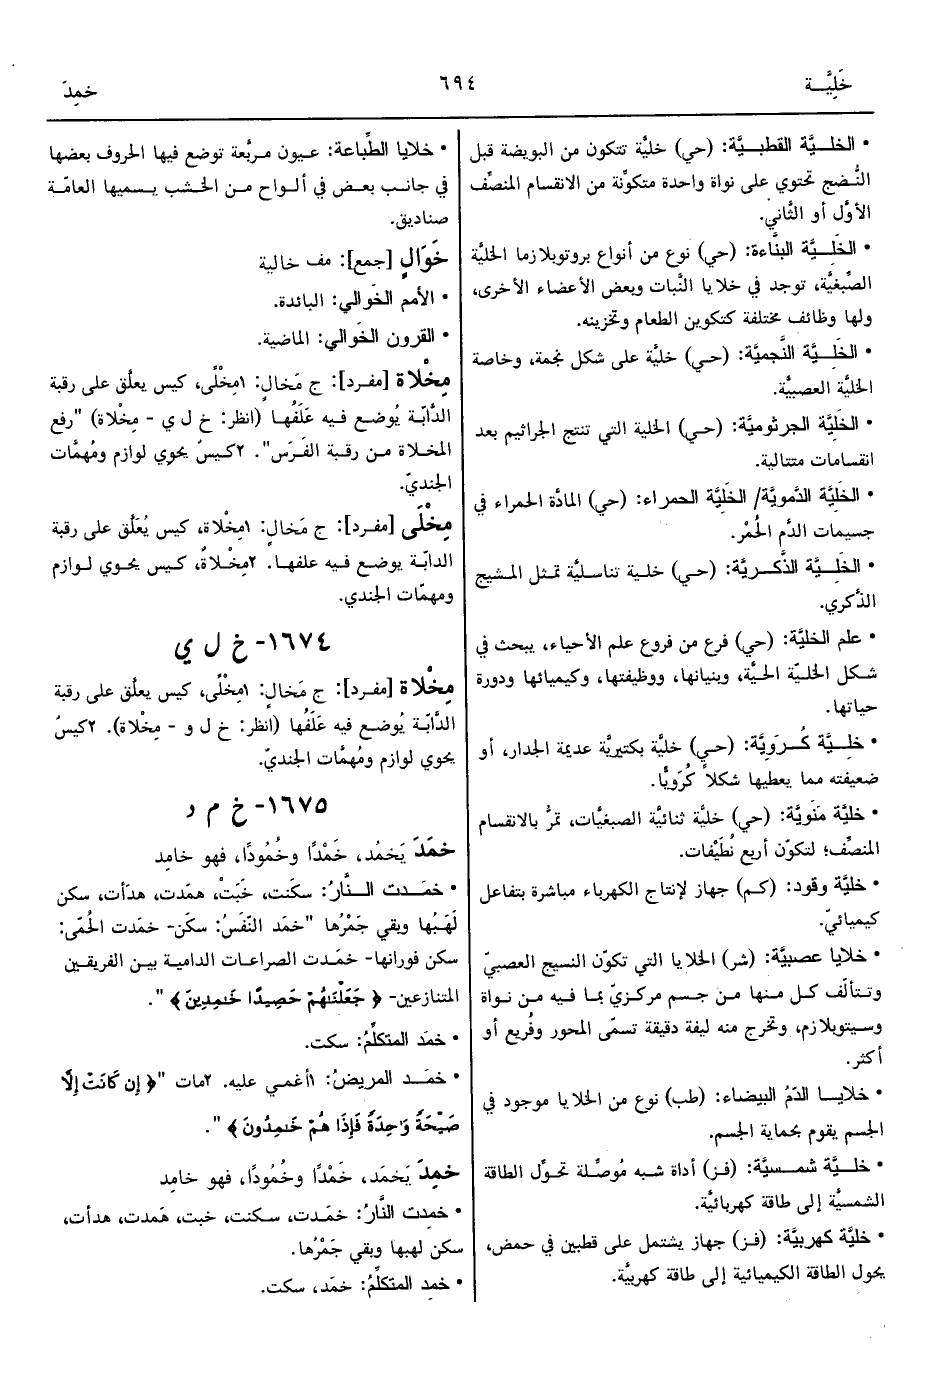 خَلِيَّة
٦٩٤
خمِدَ
• الخليَّة القطبيَّة: (حي) خليَّة تتكون من البويضة قبل
النُّضج تحتوي على نواة واحدة متكوِّنة من الانقسام المنصِّف
الأوَّل أو الثَّاني.
• الخَلِيَّة البنَّاءة: (حي) نوع من أنواع بروتوبلازما الخليَّة
الصِّبغيَّة، توجد في خلايا النَّبات وبعض الأعضاء الأخرى،
ولها وظائف مختلفة كتكوين الطعام وتخزينه.
• الخَلِيَّة النَّجميَّة: (حي) خليَّة على شكل نجمة، وخاصة
الخليَّة العصبيَّة.
• الخليَّة الجرثوميَّة: (حي) الخلية التي تنتج الجراثيم بعد
انقسامات متتالية.
• الخليَّة الدَّمويَّة/ الخليَّة الحمراء: (حي) المادَّة الحمراء في
جسيمات الدَّم الحُمْر.
• الخليَّة الذَّكريَّة: (حي) خلية تناسليَّة تمثل المشيج
الذَّكري.
• علم الخليَّة: (حي) فرع من فروع علم الأحياء، يبحث في
شكل الخليّة الحيَّة، وبنيانها، ووظيفتها، وكيميائها ودورة
حياتها.
• خليَّة كُرَويَّة: (حي) خليَّة بكتيريَّة عديمة الجدار، أو
ضعيفته مما يعطيها شكلاً كُرَويًّا.
• خليَّة مَنَوية: (حي) خليَّة ثنائيَّة الصبغيَّات، تمرُّ بالانقسام
المنصِّف؛ لتكوّن أربع نُطَيْفات.
• خليَّة وقود: (كم) جهاز لإنتاج الكهرباء مباشرة بتفاعل
كيميائيّ.
• خلايا عصبيَّة: (شر) الخلايا التي تكوّن النسيج العصبيّ
وتتألّف كل منها من جسم مركزيّ بما فيه من نواة
وسيتوبلازم، وتخرج منه ليفة دقيقة تسمّى المحور وفُريع أو
أكثر.
• خلايا الدَّمُ البيضاء: (طب) نوع من الخلايا موجود في
الجسم يقوم بحماية الجسم.
• خليَّة شمسيَّة: (فز) أداة شبه مُوصِّلة تحوِّل الطاقة
الشمسيَّة إلى طاقة كهربائيَّة.
• خليَّة كهربيَّة: (فز) جهاز يشتمل على قطبين في حمض،
يحول الطاقة الكيميائية إلى طاقة كهربيَّة.
• خلايا الطِّباعة: عيون مربَّعة توضع فيها الحروف بعضها
في جانب بعض في ألواح من الخشب يسميها العامّة
صناديق.
خَوَالٍ [جمع]: مف خالية
• الأمم الخَوالي: البائدة.
• القرون الخَوالي: الماضية.
مِخْلاة [مفرد]: ج مَخالٍ: ١مِخْلًى، كيس يعلّق على رقبة
الدَّابّة يُوضع فيه عَلَفُها (انظر: خ ل ي - مِخْلاة) "رفع
المخلاة من رقبة الفَرَس". ٢كيسٌ يحوي لوازم ومُهمَّات
الجنديّ.
مِخْلًى [مفرد]: ج مَخالٍ: ١مِخْلاة، كيس يُعَلَّق على رقبة
الدابّة يوضع فيه علفها. ٢مِخْلاةٌ، كيس يحوي لوازم
ومهمّات الجندي.
١٦٧٤- خ ل ي
مِخْلاة [مفرد]: ج مَخالٍ: ١مِخْلًى، كيس يعلّق على رقبة
الدَّابّة يُوضع فيه عَلَفُها (انظر: خ ل و - مِخْلاة). ٢كيسٌ
يحوي لوازم ومُهمَّات الجنديّ.
١٦٧٥- خ م د
خمَدَ يَخمُد، خَمْدًا وخُمُودًا، فهو خامِد
• خمَدت النَّارُ: سكَنت، خَبَتْ، همَدت، هدَأت، سكن
لَهَبُها وبقي جَمْرُها "خمَد النّفَسُ: سكَن- خمَدت الحُمّى:
سكن فورانها- خمَدت الصراعات الدامية بين الفريقين
المتنازعين- ﴿ جَعَلْنَاهُمْ حَصِيدًا خَامِدِينَ ﴾ ".
• خمَد المتكلِّمُ: سكت.
• خمَد المريضُ: ١أغمي عليه. ٢مات "﴿ إِن كَانَتْ إِلَّا
صَيْحَةً وَاحِدَةً فَإِذَا هُمْ خَامِدُونَ ﴾ ".
خمِدَ يَخمَد، خَمْدًا وخُمُودًا، فهو خامِد
• خمِدت النَّارُ: خمَدت، سكنت، خبت، هَمدت، هدأت،
سكن لهبها وبقي جَمْرُها.
• خمِد المتكلِّمُ: خمَد، سكت.